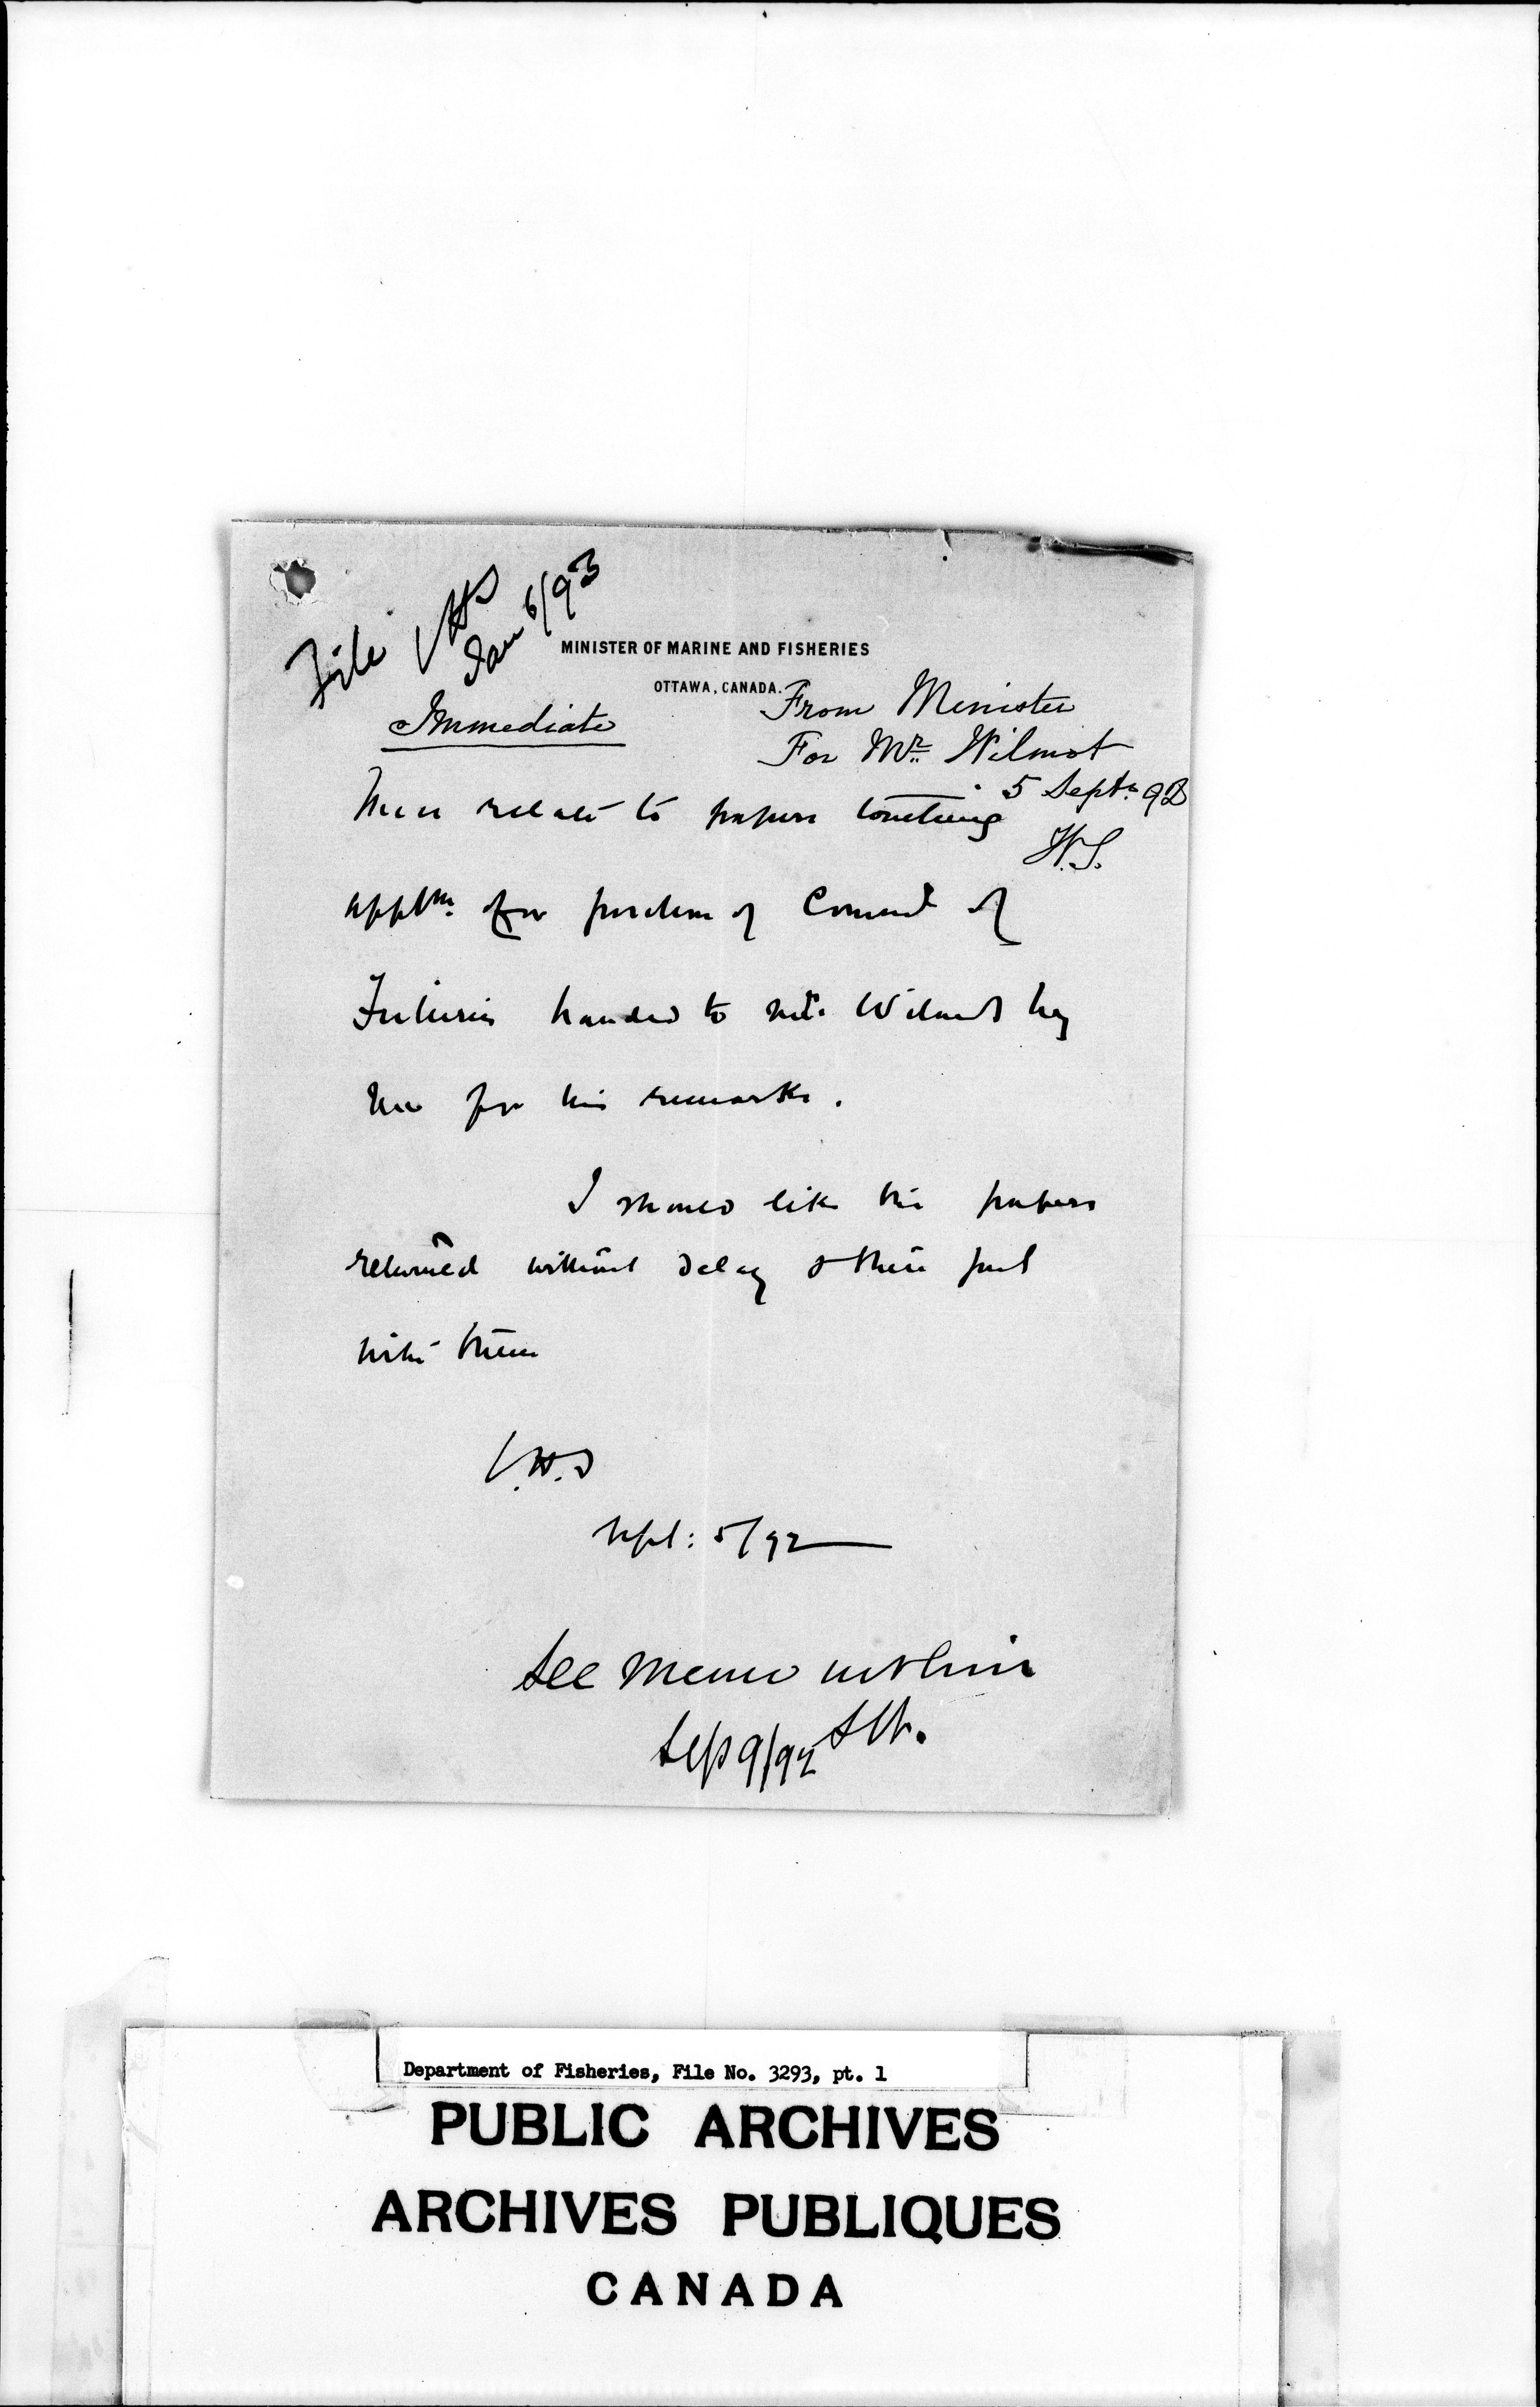 File CHT
Jan 6/93
MINISTER OF MARINE AND FISHERIES
OTTAWA, CANADA.
From Minister
Immediate
For Mr. Wilmot
5 Sept. 92
These relate to papers touching
W.S.
appltn. for position of Comnd of
Fisheries handed to Mr. Wilmot by
me for his remarks.
I should like the papers
returned without delay & these put
with them
C.H.T
Sept: 5/92
See memo within
Sep 9/92 SW.
Department of Fisheries, File No. 3293, pt. 1
PUBLIC ARCHIVES
ARCHIVES PUBLIQUES
CANADA